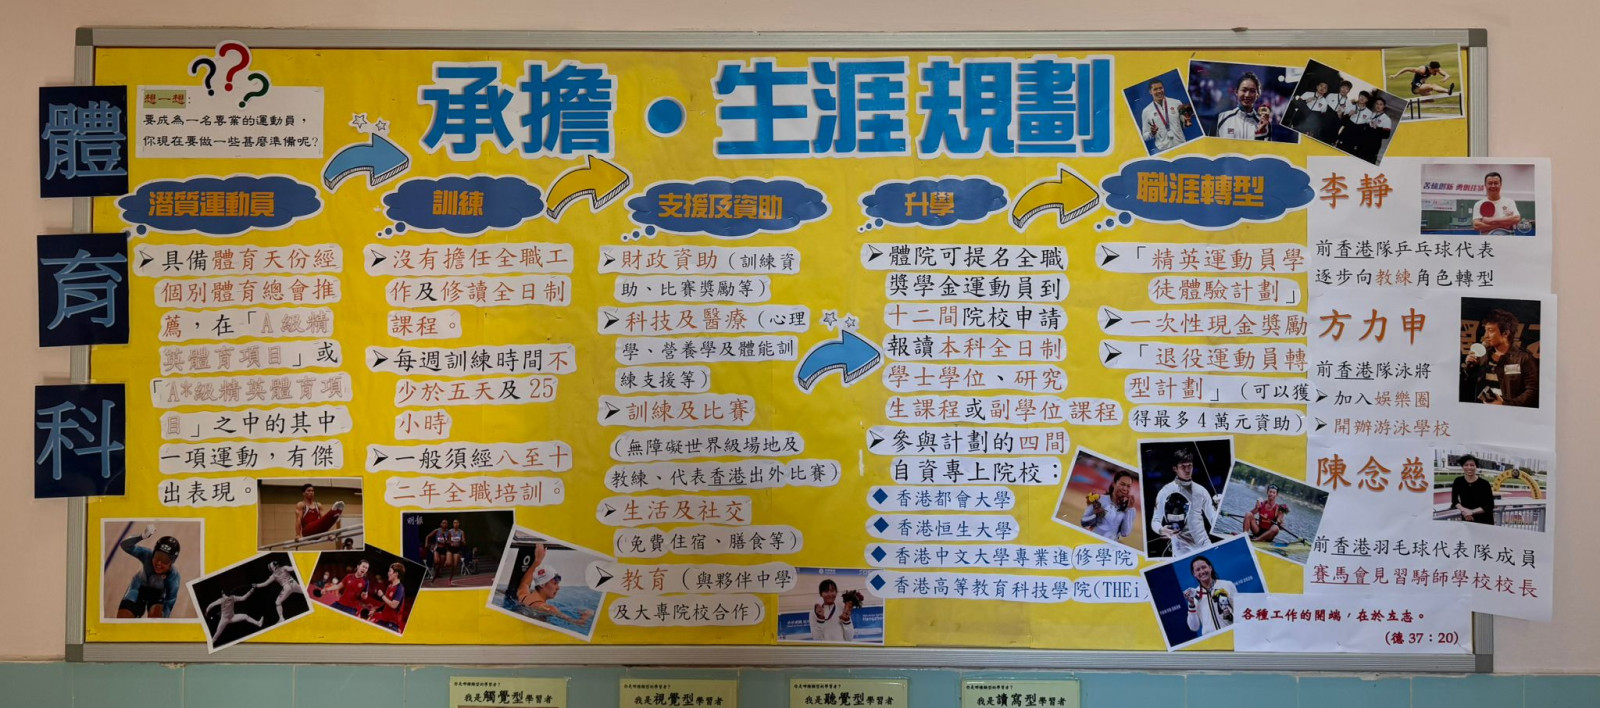 體
育
科
想一想:
要成為一名專業的運動員，
你現在要做一些甚麼準備呢?
???
承擔・生涯規劃
潛質運動員
➢具備體育天份經
個別體育總會推
薦，在「A級精
英體育項目」或
「A*級精英體育項
目」之中的其中
一項運動，有傑
出表現。
訓練
➢沒有擔任全職工
作及修讀全日制
課程。
➢每週訓練時間不
少於五天及 25
小時
➢一般須經八至十
二年全職培訓。
支援及資助
➢財政資助（訓練資
助、比賽獎勵等）
➢科技及醫療（心理
學、營養學及體能訓
練支援等）
➢訓練及比賽
（無障礙世界級場地及
教練、代表香港出外比賽）
➢生活及社交
（免費住宿、膳食等）
➢教育（與夥伴中學
及大專院校合作）
升學
➢體院可提名全職
獎學金運動員到
十二間院校申請
報讀本科全日制
學士學位、研究
生課程或副學位課程
➢參與計劃的四間
自資專上院校：
◆香港都會大學
◆香港恒生大學
◆香港中文大學專業進修學院
◆香港高等教育科技學院(THEi)
職涯轉型
➢「精英運動員學
徒體驗計劃」
➢一次性現金獎勵
➢「退役運動員轉
型計劃」（可以獲
得最多4萬元資助）
李靜
前香港隊乒乓球代表
逐步向教練角色轉型
方力申
前香港隊泳將
➢加入娛樂圈
➢開辦游泳學校
陳念慈
前香港羽毛球代表隊成員
賽馬會見習騎師學校校長
各種工作的開端，在於立志。
（德 37：20）
明報
我是觸覺型學習者
我是視覺型學習者
我是聽覺型學習者
我是讀寫型學習者